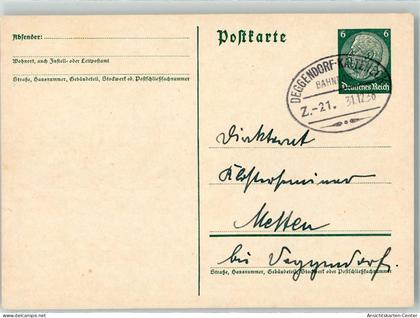 Absender:
Wohnort, auch Zustell- oder Leitpostamt
Straße, Hausnummer, Gebäudeteil, Stockwerk od. Postschließfachnummer
Postkarte
6 6
Deutsches Reich
DEGGENDORF-
BAHN
Z.-21. 31.12.36
Direktorat
Klosterseminar
Metten
bei Deggendorf.
Straße, Hausnummer, Gebäudeteil, Stockwerk oder Postschließfachnummer
delcampe.net
Ansichtskarten-Center